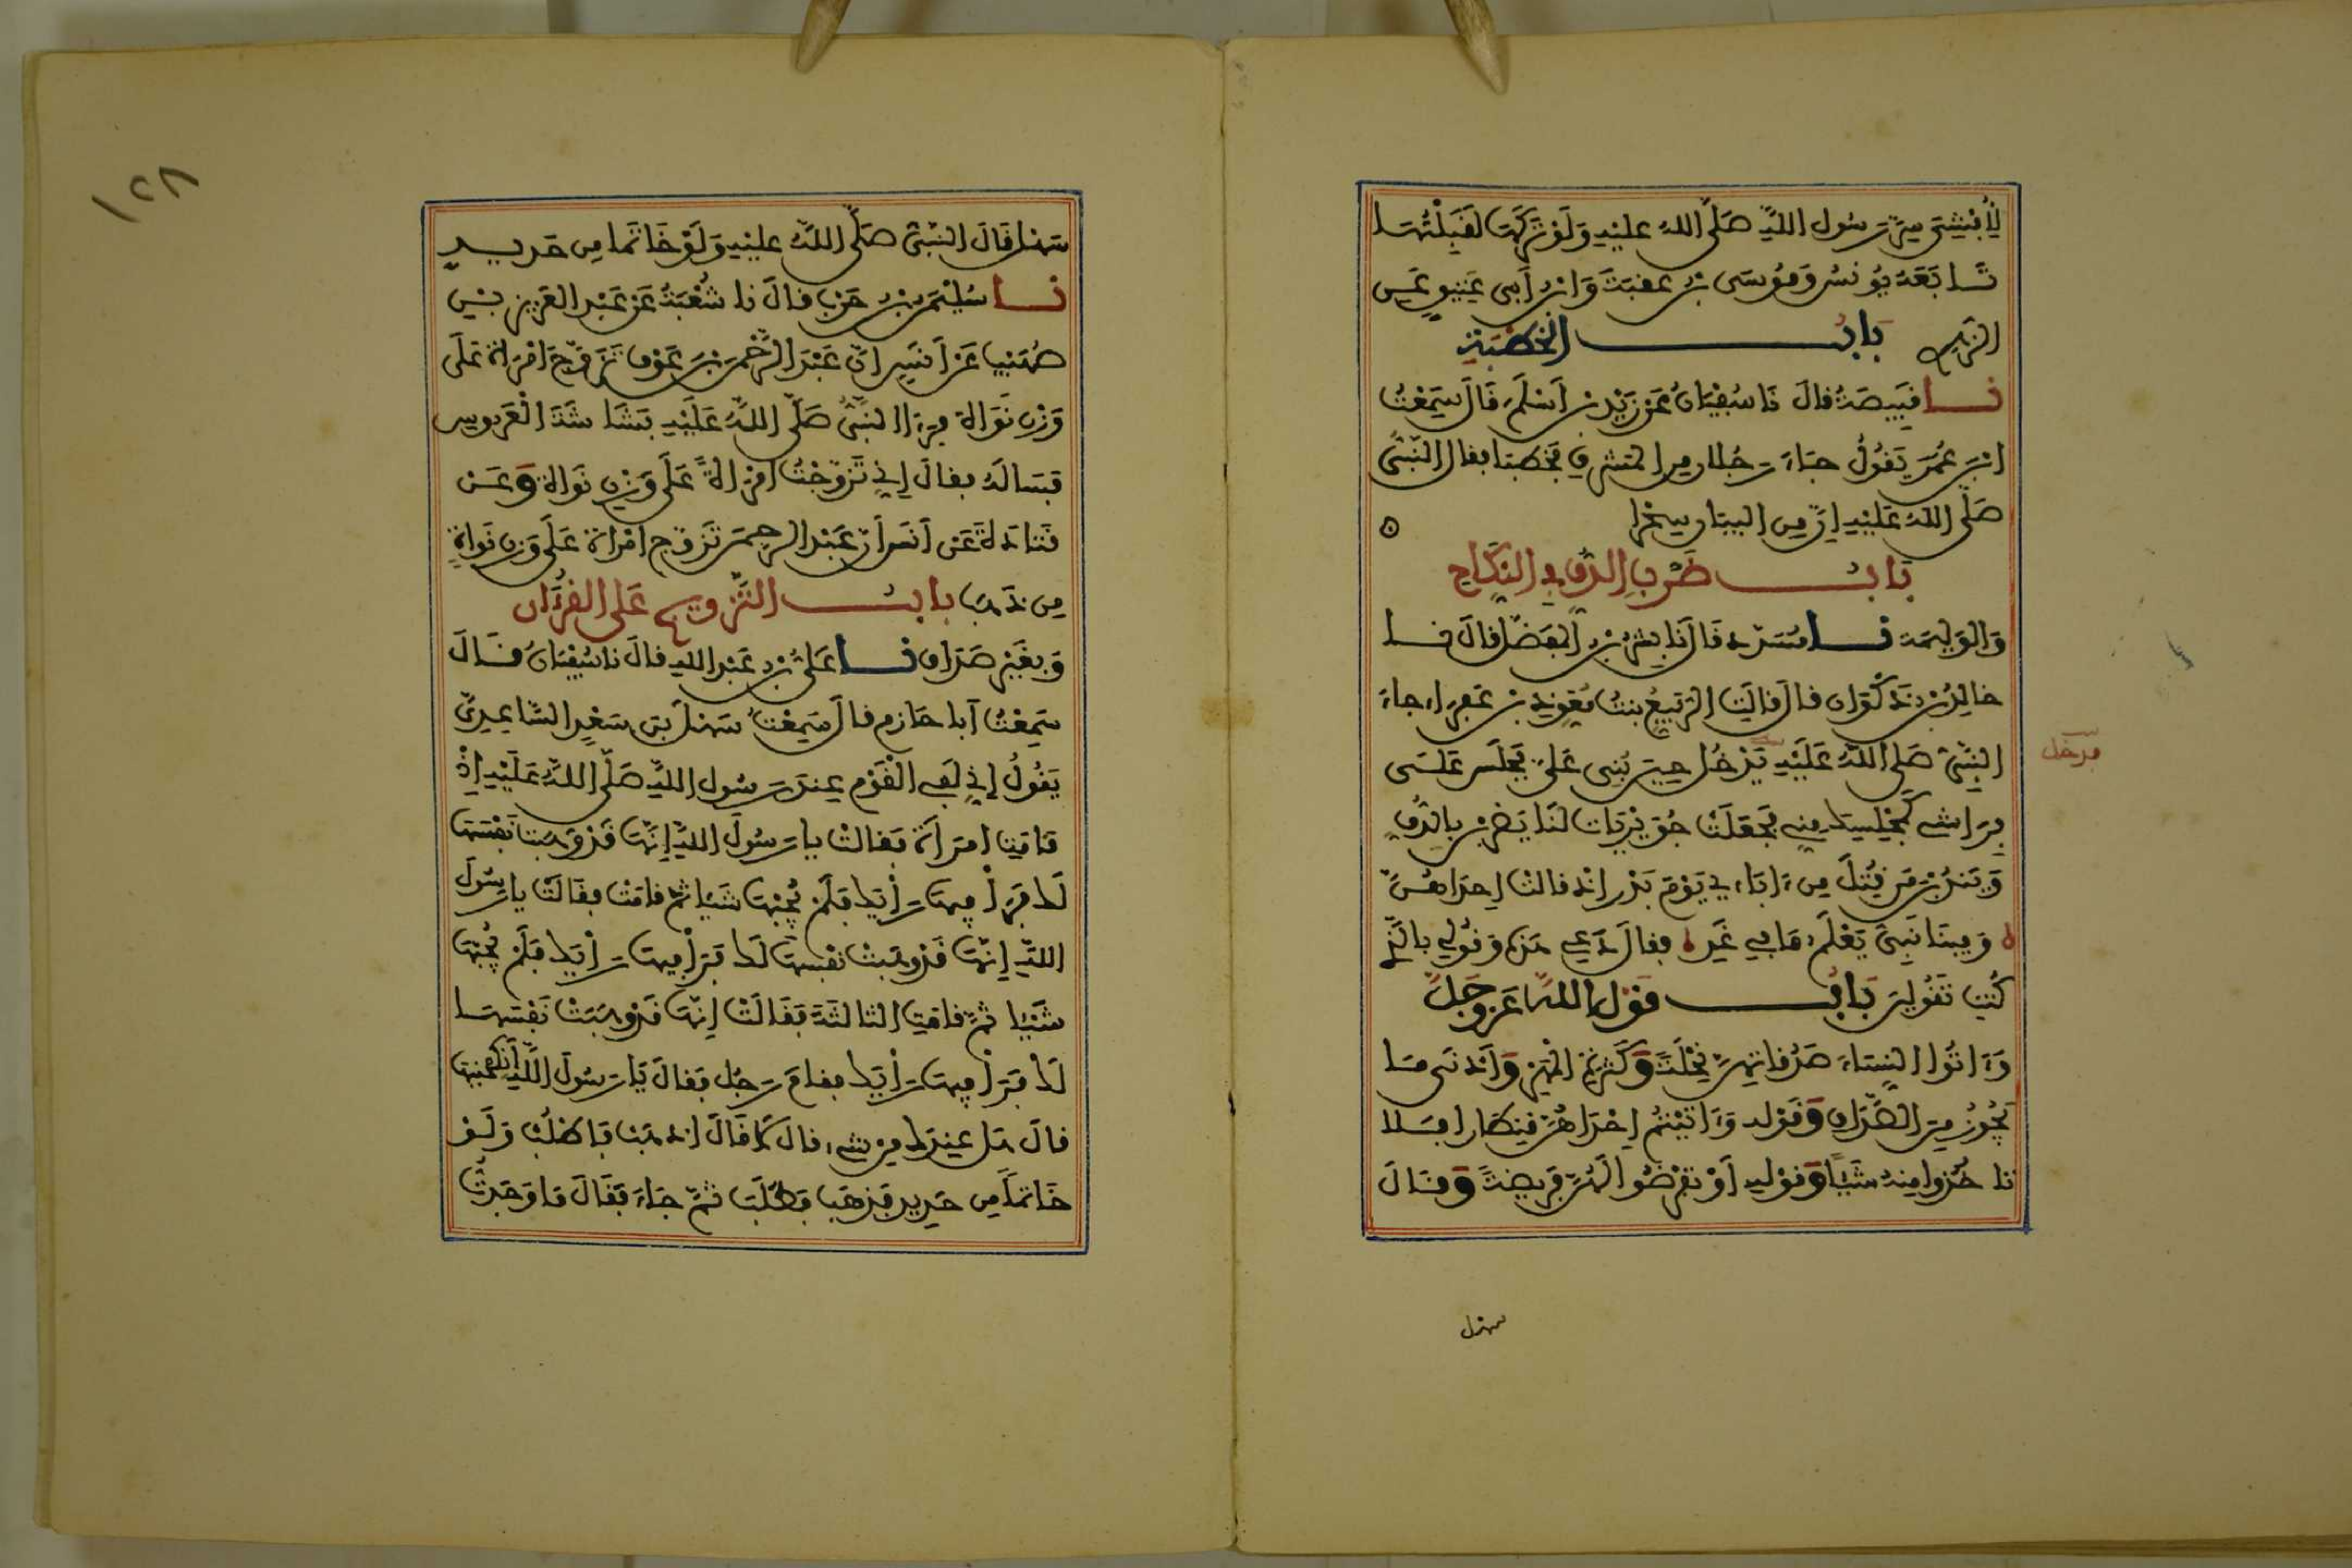 لأبشي سر رسول الله صلى الله عليه ولو تركها لقبلتها
تابعه يونس وموسى بن عقبة وابن أبي عتيق عن
الزهري باب الخطبة
نا قبيصة قال نا سفيان عن زيد بن أسلم قال سمعت
ابن عمر يقول جاء رجلان من المشرق فخطبا فقال النبي
صلى الله عليه إن من البيان سحرا
باب ضرب الدف في النكاح
والوليمة نا مسدد قال نا بشر بن المفضل قال نا
خالد بن ذكوان قال قالت الربيع بنت معوذ بن عفراء جاء
النبي صلى الله عليه يدخل حين بني علي فجلس على
فراشي كمجلسك مني فجعلت جويريات لنا يضربن بالدف
ويندبن من قتل من ءاباءي يوم بدر إذ قالت إحداهن
وفينا نبي يعلم ما في غد فقال دعي هذه وقولي بالذي
كنت تقولين باب قول الله عز وجل
وءاتوا النساء صدقاتهن نحلة وكثرة المهر وأدنى ما
يجوز من الصداق وقوله وءاتيتم إحداهن قنطارا فلا
تاخذوا منه شيئا وقوله أو تفرضوا لهن فريضة وقال
فدخل
سهل
١٢٨
سهل قال النبي صلى الله عليه ولو خاتما من حديد
نا سليمن بن حرب قال نا شعبة عن عبد العزيز بن
صهيب عن أنس أن عبد الرحمن بن عوف تزوج امرأة على
وزن نواة فرأى النبي صلى الله عليه بشاشة العروس
فسأله فقال إني تزوجت امرأة على وزن نواة وعن
قتادة عن أنس أن عبد الرحمن تزوج امرأة على وزن نواة
من ذهب باب التزويج على القرءان
وبغير صداق نا علي بن عبد الله قال نا سفيان قال
سمعت أبا حازم قال سمعت سهل بن سعد الساعدي
يقول إني لفي القوم عند رسول الله صلى الله عليه إذ
قامت امرأة فقالت يا رسول الله إنها قد وهبت نفسها
لك فرأ فيها رأيك فلم يجبها شيئا ثم قامت فقالت يا رسول
الله إنها قد وهبت نفسها لك فرأ فيها رأيك فلم يجبها
شيئا ثم قامت الثالثة فقالت إنها قد وهبت نفسها
لك فرأ فيها رأيك فقام رجل فقال يا رسول الله أنكحنيها
قال هل عندك من شيء قال لا قال اذهب فاطلب ولو
خاتما من حديد فذهب فطلب ثم جاء فقال ما وجدت